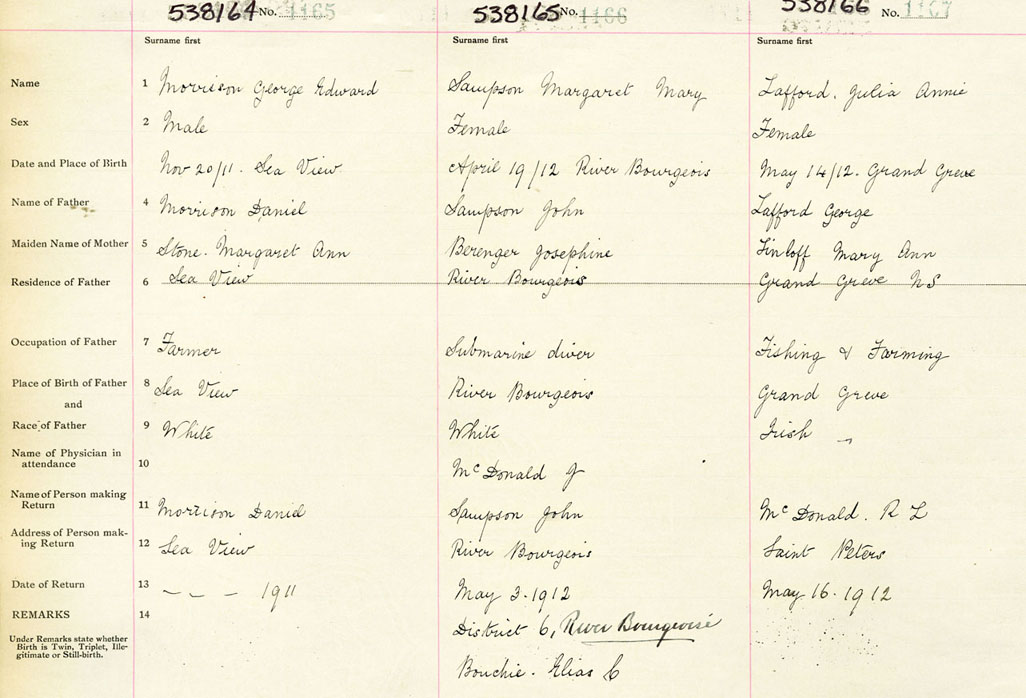 538164 No. 1165 538165 No. 1166 538166 No. 1167
Surname first Surname first Surname first
Name 1 Morrison George Edward Sampson Margaret Mary Lafford. Julia Annie
Sex 2 Male Female Female
Date and Place of Birth 3 Nov 20/11. Sea View April 19/12 River Bourgeois May 14/12. Grand Greve
Name of Father 4 Morrison Daniel Sampson John Lafford George
Maiden Name of Mother 5 Stone. Margaret Ann Berenger Josephine Mary Ann
Residence of Father 6 Sea View River Bourgeois Grand Greve NS
Occupation of Father 7 Farmer Submarine diver Fishing & Farming
Place of Birth of Father 8 Sea View River Bourgeois Grand Greve
and
Race of Father 9 White White Irish
Name of Physician in
attendance 10 McDonald J
Name of Person making
Return 11 Morrison Daniel Sampson John McDonald. R L
Address of Person mak-
ing Return 12 Sea View River Bourgeois Saint Peters
Date of Return 13 – – – 1911 May 3. 1912 May 16. 1912
REMARKS 14 District 6, River Bourgeois
Under Remarks state whether
Birth is Twin, Triplet, Ille-
gitimate or Still-birth.
Bouchie. Elias C